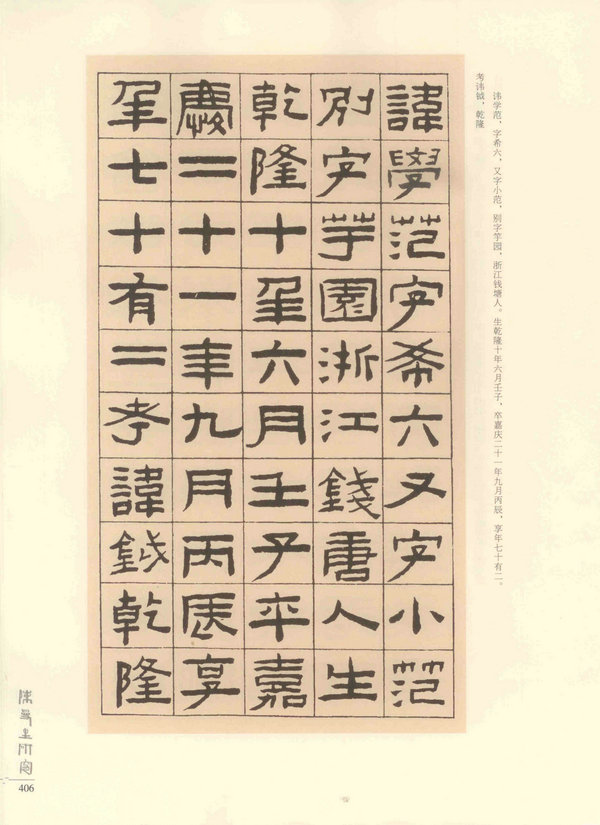 讳学范，字希六，又字小范，别字芋园，浙江钱塘人。生乾隆十年六月壬子，卒嘉庆二十一年九月丙辰，享年七十有二。
考讳钺，乾隆
諱學范字希六又字小范
別字芋園浙江錢唐人生
乾隆十年六月壬子卒嘉
慶二十一年九月丙辰享
年七十有二考諱鉞乾隆
406